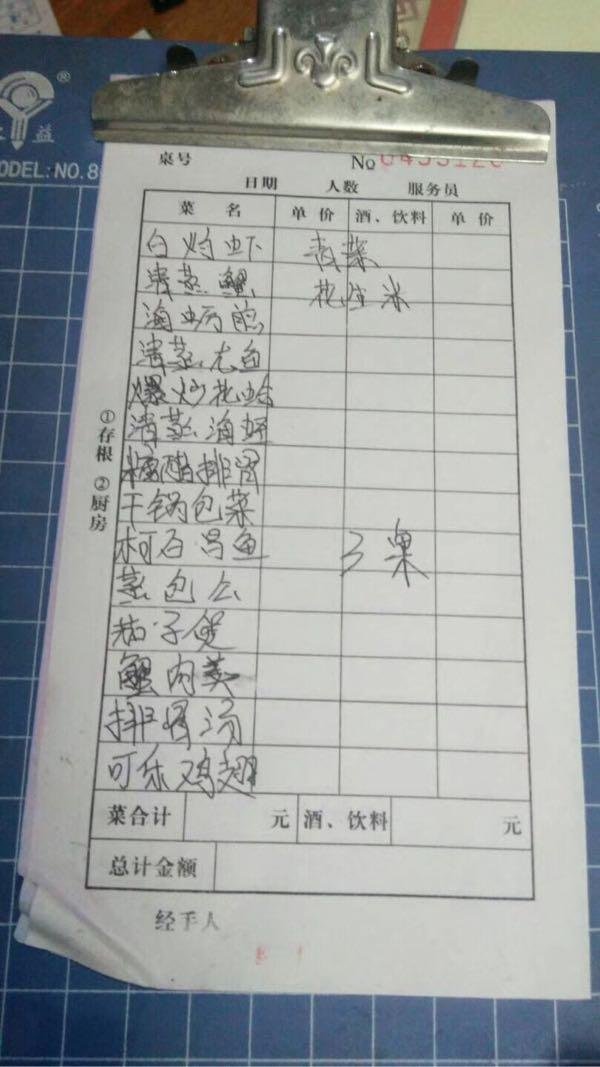 ®
益
MODEL:NO.8
桌号 No 0455120
日期 人数 服务员
菜 名 单 价 酒、饮料 单 价
白灼虾 青菜
清蒸蟹 花生米
海蛎煎
清蒸龙鱼
爆炒花蛤
清蒸海虾
糖醋排骨
干锅包菜
柯石昌鱼 3桌
蒸包公
茄子煲
蟹肉羹
排骨汤
可乐鸡翅
①存根 ②厨房
菜合计 元 酒、饮料 元
总计金额
经手人